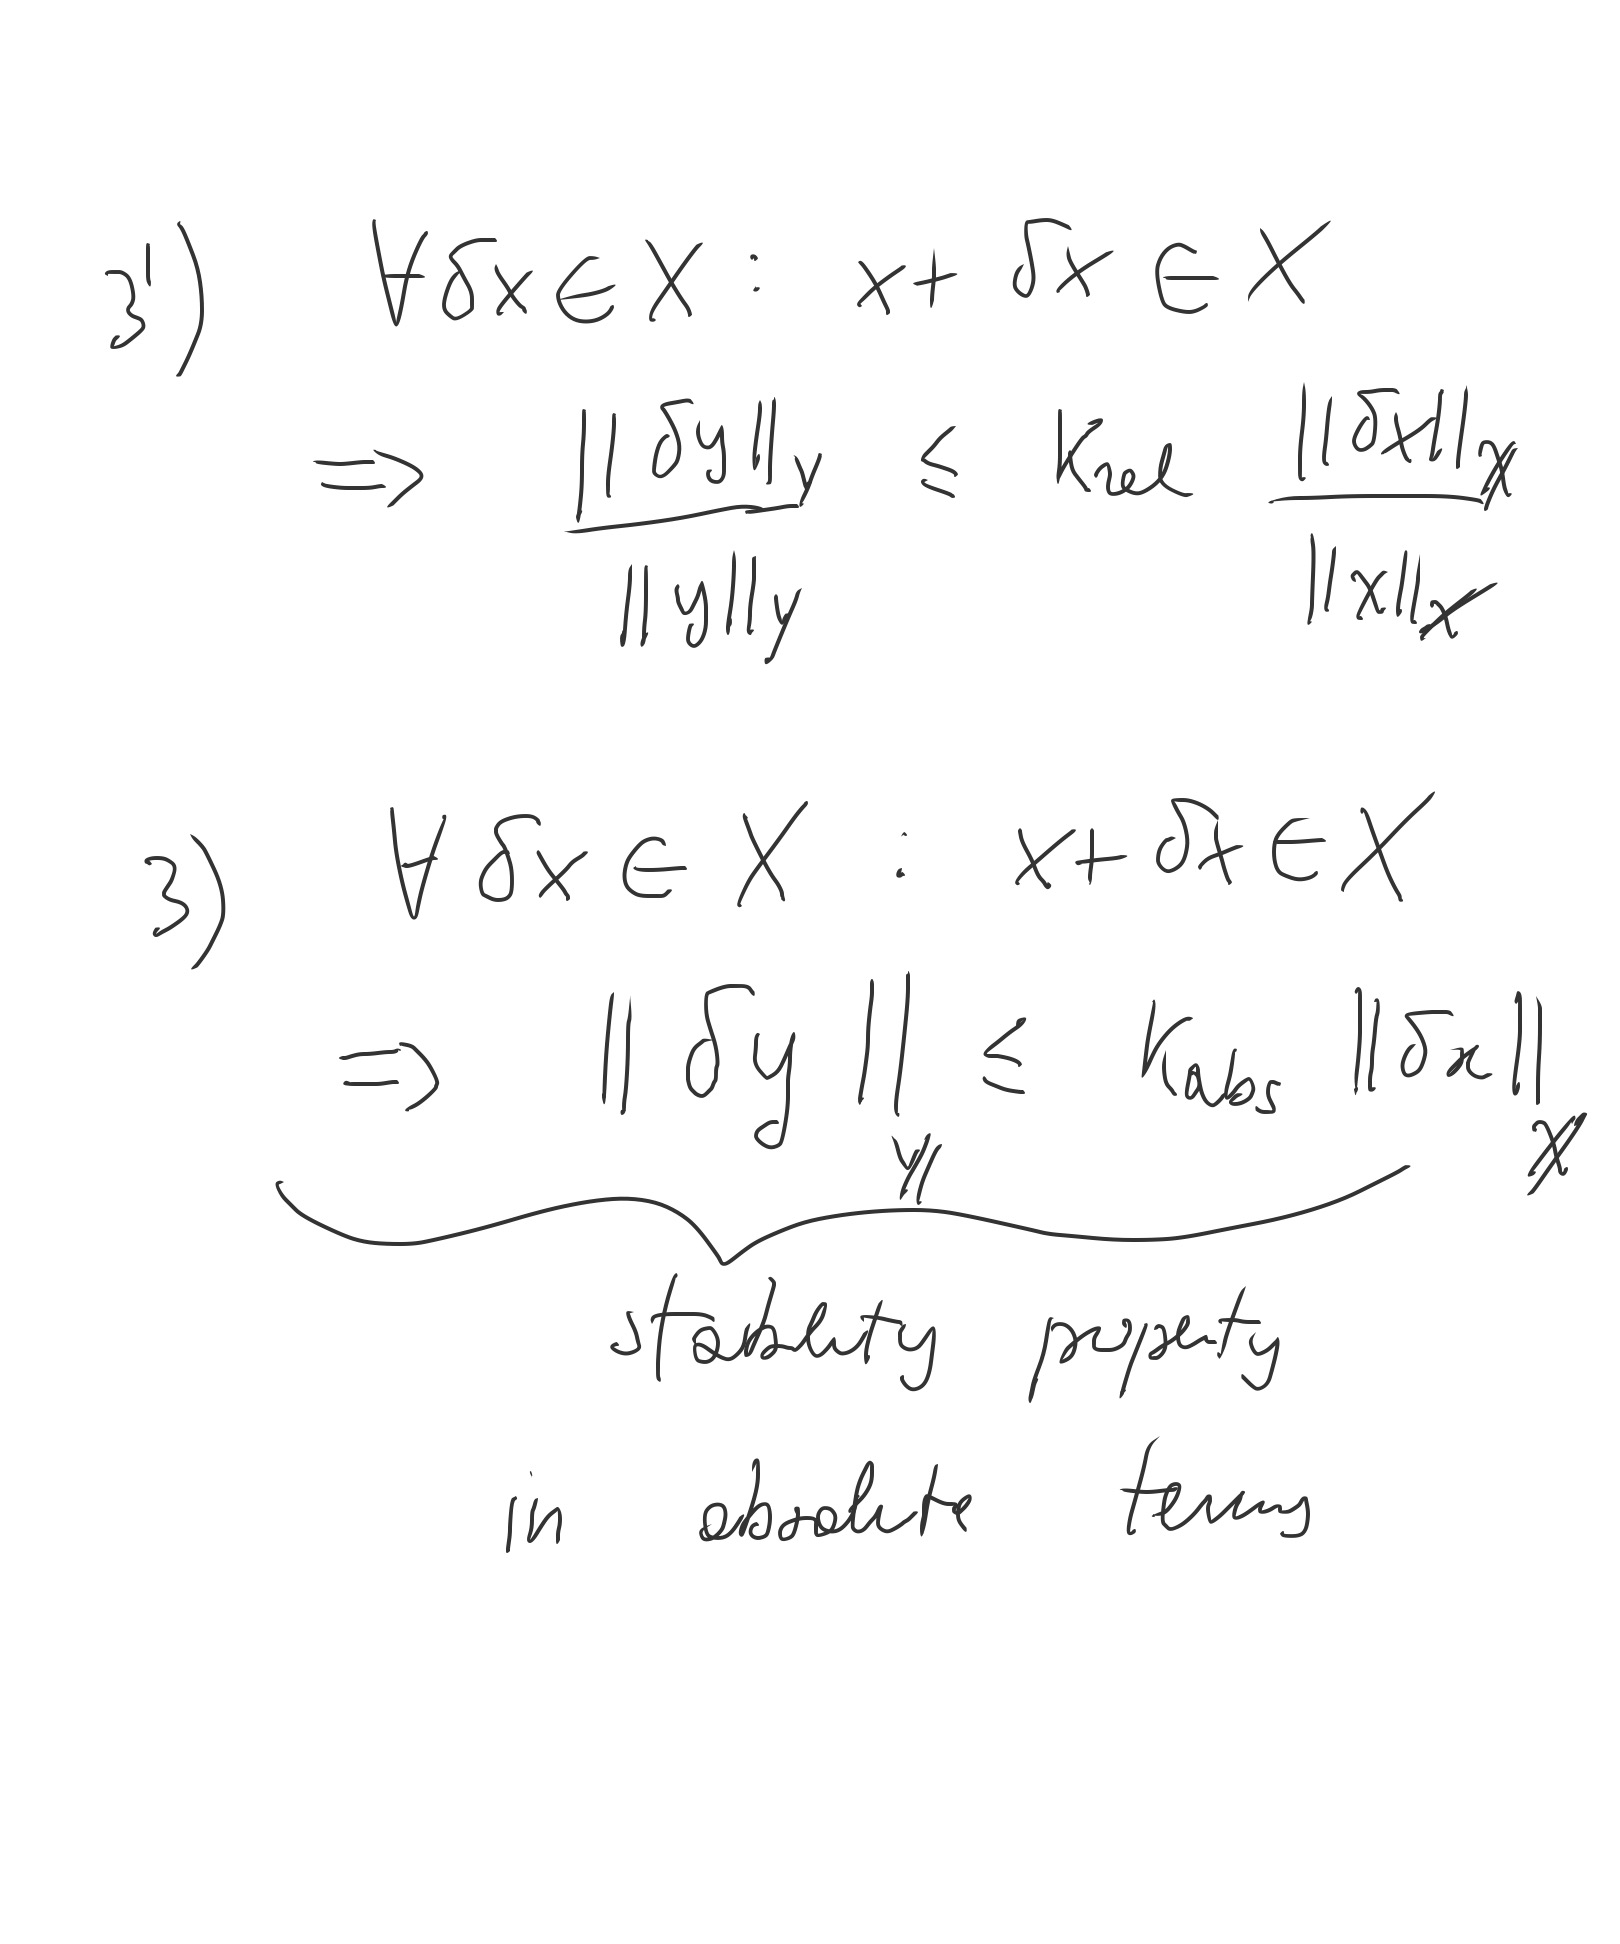 3') ∀ δx ∈ X : x + δx ∈ X
⟹ ||δy||_Y / ||y||_Y ≤ K_rel ||δx||_X / ||x||_X
3) ∀ δx ∈ X : x + δx ∈ X
⟹ ||δy||_Y ≤ K_abs ||δx||_X
stability property
in absolute terms